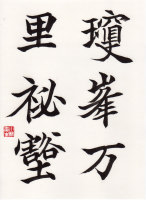 瓊峯万
里祕壑